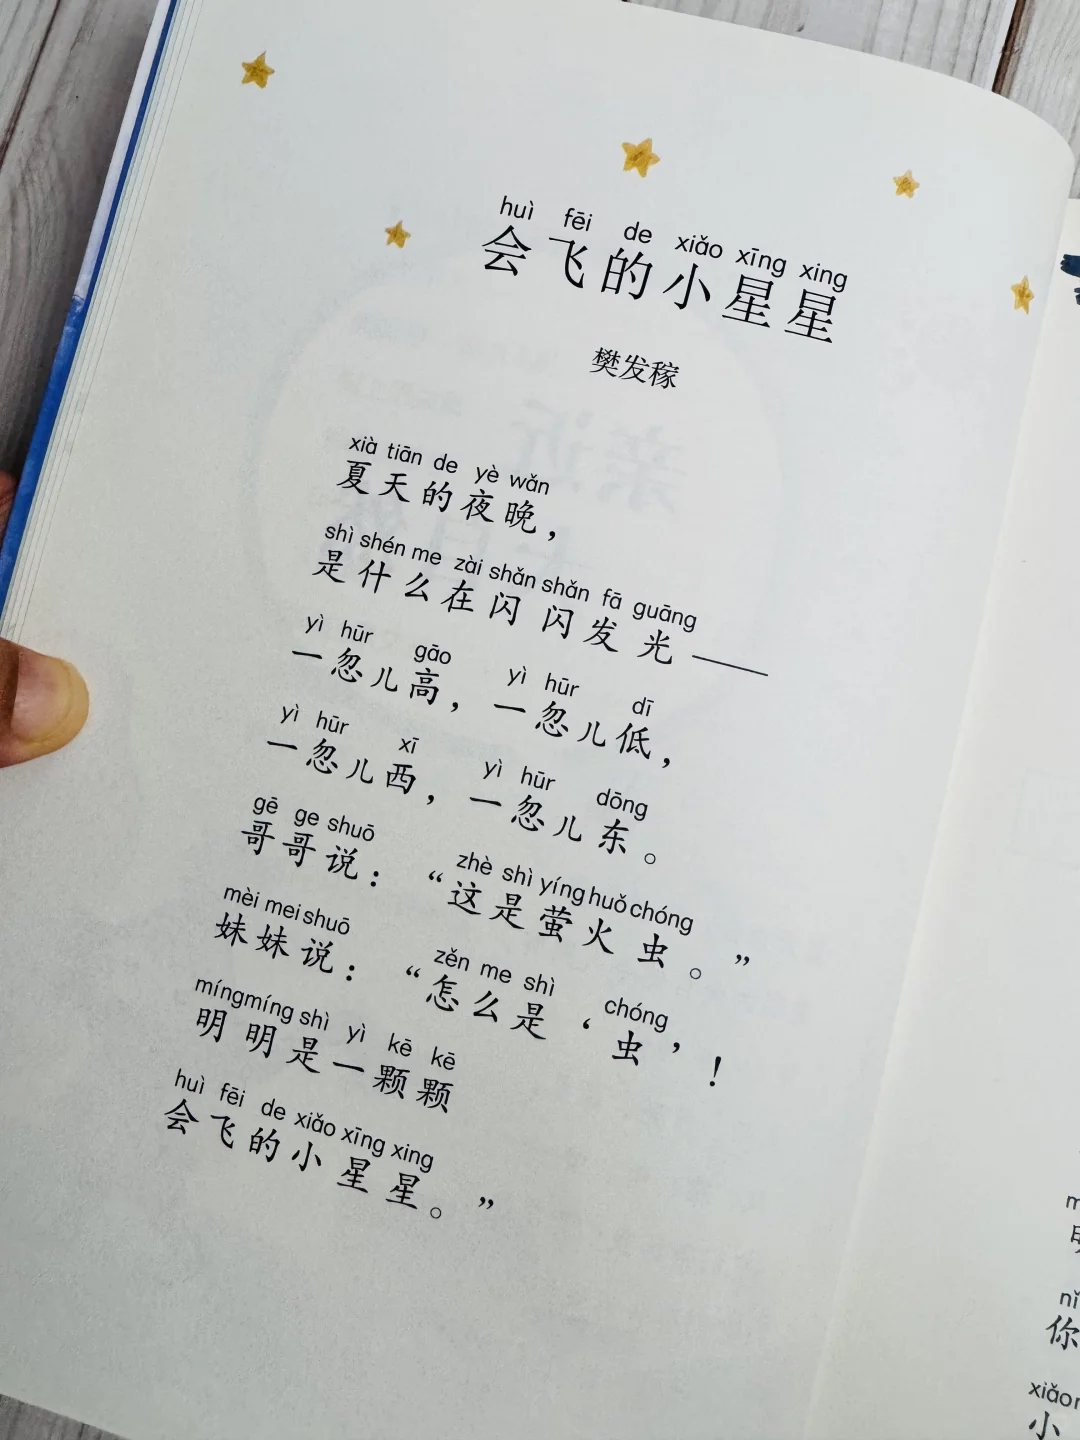 huì fēi de xiǎo xīng xing
会飞的小星星
樊发稼
xià tiān de yè wǎn
夏天的夜晚，
shì shén me zài shǎn shǎn fā guāng
是什么在闪闪发光——
yì hūr gāo yì hūr dī
一忽儿高，一忽儿低，
yì hūr xī yì hūr dōng
一忽儿西，一忽儿东。
gē ge shuō zhè shì yíng huǒ chóng
哥哥说：“这是萤火虫。”
mèi mei shuō zěn me shì chóng
妹妹说：“怎么是‘虫’！
míng míng shì yì kē kē
明明是一颗颗
huì fēi de xiǎo xīng xing
会飞的小星星。”
nǐ
你
xiǎo
小